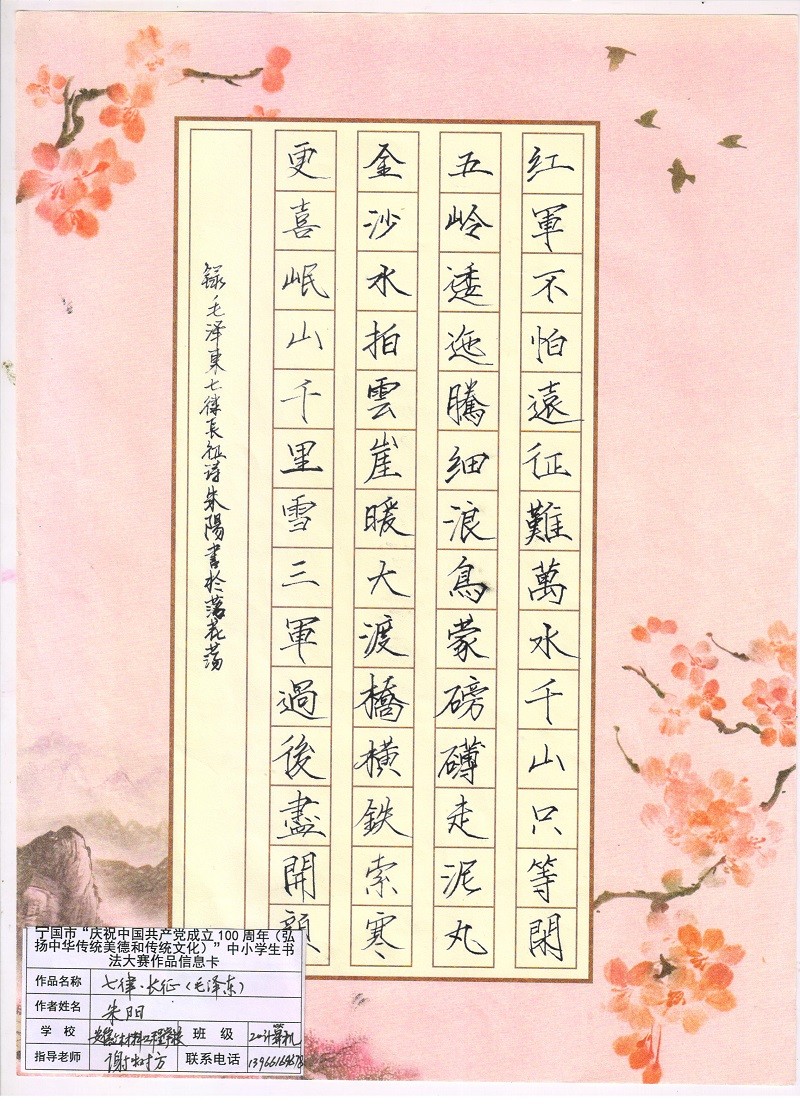 红軍不怕遠征難萬水千山只等閑
五岭逶迤騰细浪鳥蒙磅礴走泥丸
金沙水拍雲崖暖大渡橋横鉄索寒
更喜岷山千里雪三軍過後盡開顔
録毛泽東七律長征诗朱陽書於落花荡
宁国市“庆祝中国共产党成立100周年（弘
扬中华传统美德和传统文化）”中小学生书
法大赛作品信息卡
作品名称 七律·长征（毛泽东）
作者姓名 朱阳
学 校 安徽材料工程学校 班 级 20计算机
指导老师 联系电话